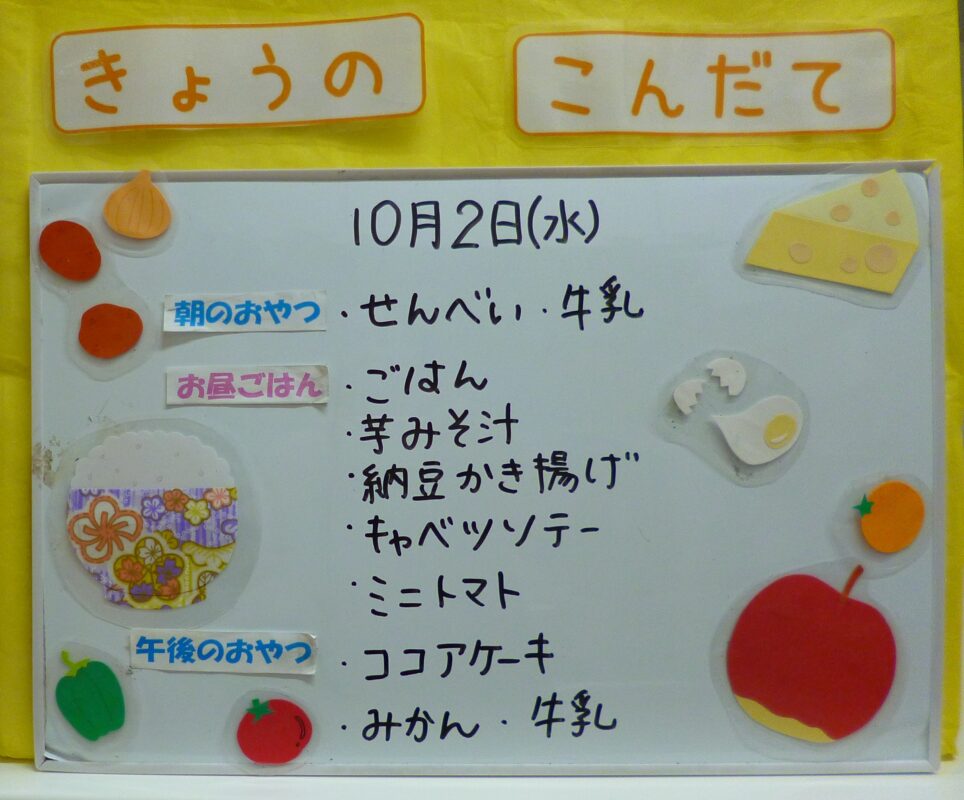 きょうの こんだて
10月2日(水)
朝のおやつ ・せんべい ・牛乳
お昼ごはん ・ごはん
・芋みそ汁
・納豆かき揚げ
・キャベツソテー
・ミニトマト
午後のおやつ ・ココアケーキ
・みかん ・牛乳